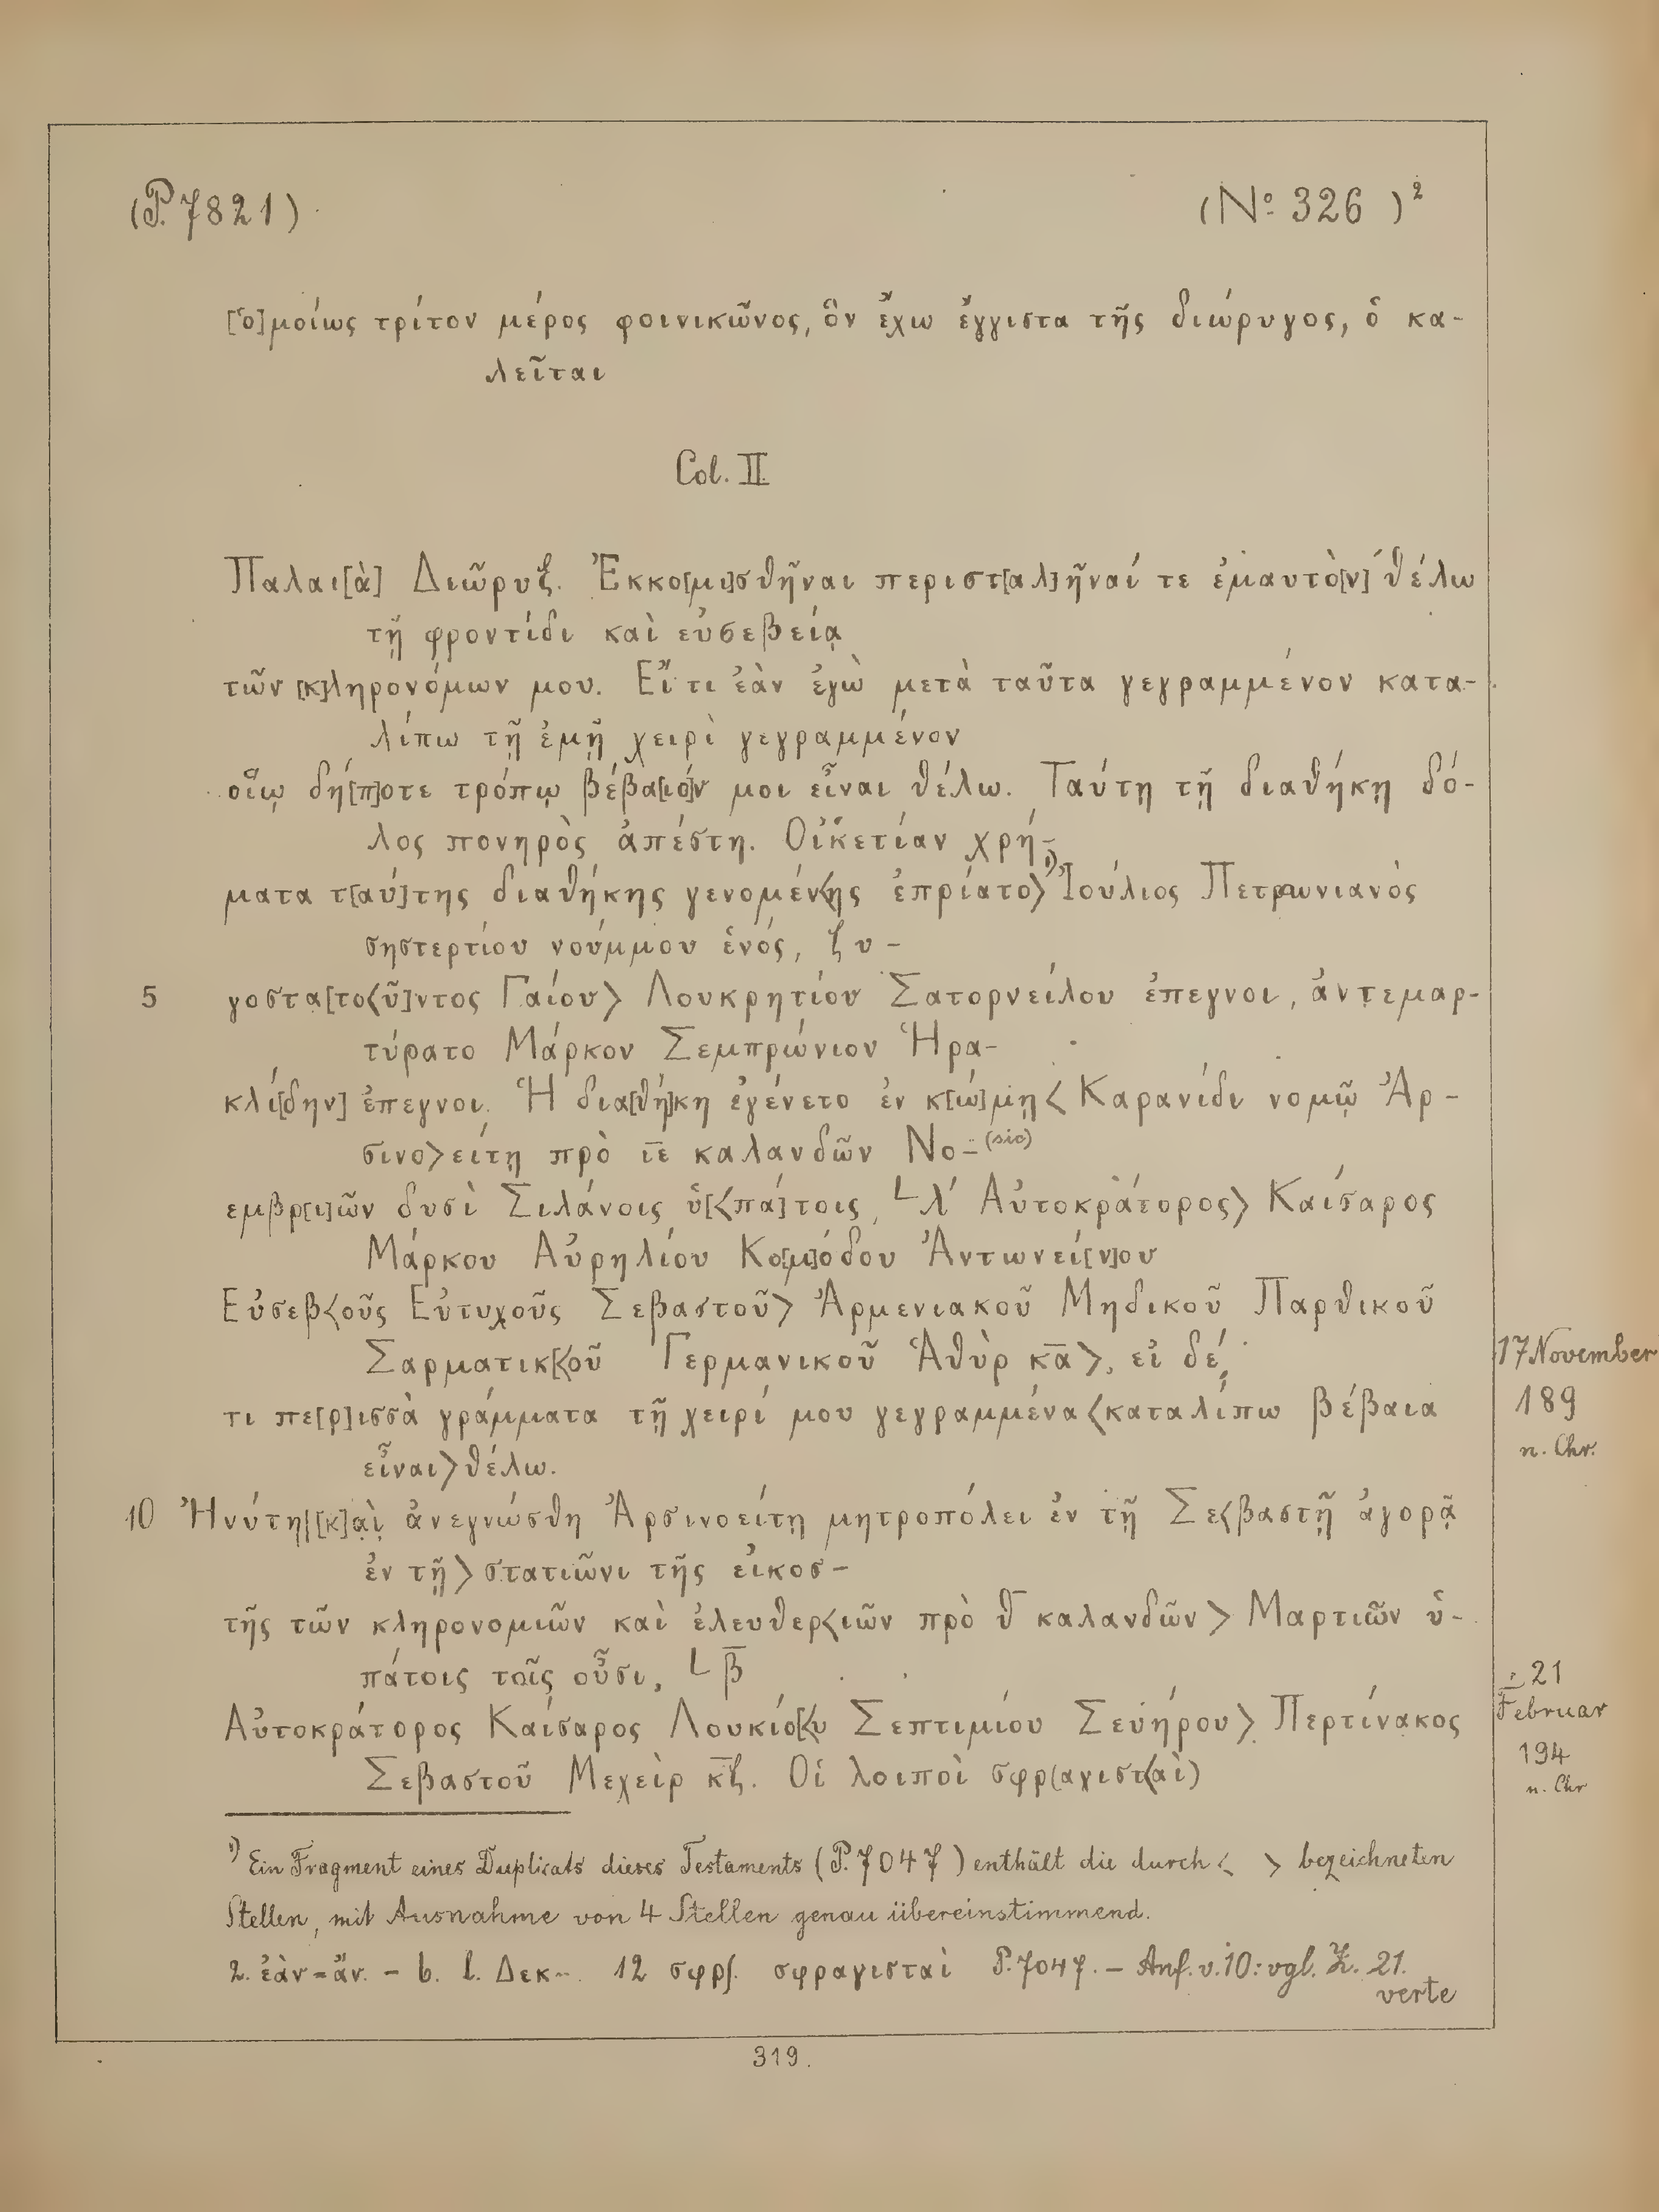 (P. 7821)
(No. 326 )²
[ὁ]μοίως τρίτον μέρος φοινικῶνος, ὃν ἔχω ἔγγιστα τῆς διώρυγος, ὃ κα-
λεῖται
Col. II
Παλαι[ὰ] Διῶρυξ. Ἐκκο[μι]σθῆναι περιστ[αλ]ῆναί τε ἐμαυτὸ[ν] θέλω
τῇ φροντίδι καὶ εὐσεβείᾳ
τῶν [κ]ληρονόμων μου. Εἴ τι ἐὰν ἐγὼ μετὰ ταῦτα γεγραμμένον κατα-
λίπω τῇ ἐμῇ χειρὶ γεγραμμένον
οἵῳ δή[π]οτε τρόπῳ βέβα[ιό]ν μοι εἶναι θέλω. Ταύτῃ τῇ διαθήκῃ δό-
λος πονηρὸς ἀπέστη. Οἰκετίαν χρή-
ματα τ[αύ]της διαθήκης γενομέν<ης ἐπρίατο>¹⁾ Ἰούλιος Πετρωνιανὸς
σηστερτίου νούμμου ἑνός, ζυ-
5 γοστα[το<ῦ]ντος Γαίου> Λουκρητίου Σατορνείλου ἐπεγνοι, ἀντεμαρ-
τύρατο Μάρκον Σεμπρώνιον Ἡρα-
κλί[δην] ἐπεγνοι. Ἡ δια[θή]κη ἐγένετο ἐν κ[ώ]μῃ <Καρανίδι νομῷ Ἀρ-
σινο>είτῃ πρὸ ι̅ε̅ καλανδῶν Νο- (sic)
εμβρ[ι]ῶν δυσὶ Σιλάνοις ὑ[<πά]τοις, L λ´ Αὐτοκράτορος> Καίσαρος
Μάρκου Αὐρηλίου Κο[μ]όδου Ἀντωνεί[ν]ου
Εὐσεβ<οῦς Εὐτυχοῦς Σεβαστοῦ> Ἀρμενιακοῦ Μηδικοῦ Παρθικοῦ
Σαρματικ[<οῦ Γερμανικοῦ Ἁθὺρ κ̅α̅>, εἰ δέ
17 November
189
n. Chr.
τι πε[ρ]ισσὰ γράμματα τῇ χειρί μου γεγραμμένα <καταλίπω βέβαια
εἶναι> θέλω.
10 Ἠνύτη|[κ]αὶ ἀνεγνώσθη Ἀρσινοείτῃ μητροπόλει ἐν τῇ Σε<βαστῇ ἀγορᾷ
ἐν τῇ> στατιῶνι τῆς εἰκοσ-
τῆς τῶν κληρονομιῶν καὶ ἐλευθερ<ιῶν πρὸ θ̅ καλανδῶν> Μαρτιῶν ὑ-
πάτοις τοῖς οὖσι, L β̅
21
Februar
194
n. Chr
Αὐτοκράτορος Καίσαρος Λουκίο[<υ Σεπτιμίου Σευήρου> Περτίνακος
Σεβαστοῦ Μεχεὶρ κ̅ζ̅. Οἱ λοιποὶ σφρ(αγιστ<αὶ)
¹⁾ Ein Fragment eines Duplicats dieses Testaments (P. 7047) enthält die durch < > bezeichneten
Stellen, mit Ausnahme von 4 Stellen genau übereinstimmend.
2. ἐὰν = ἄν. – 6. l. Δεκ-. 12 σφρ∫. σφραγισταὶ P. 7047. – Anf. v. 10: vgl. Z. 21.
verte
319.